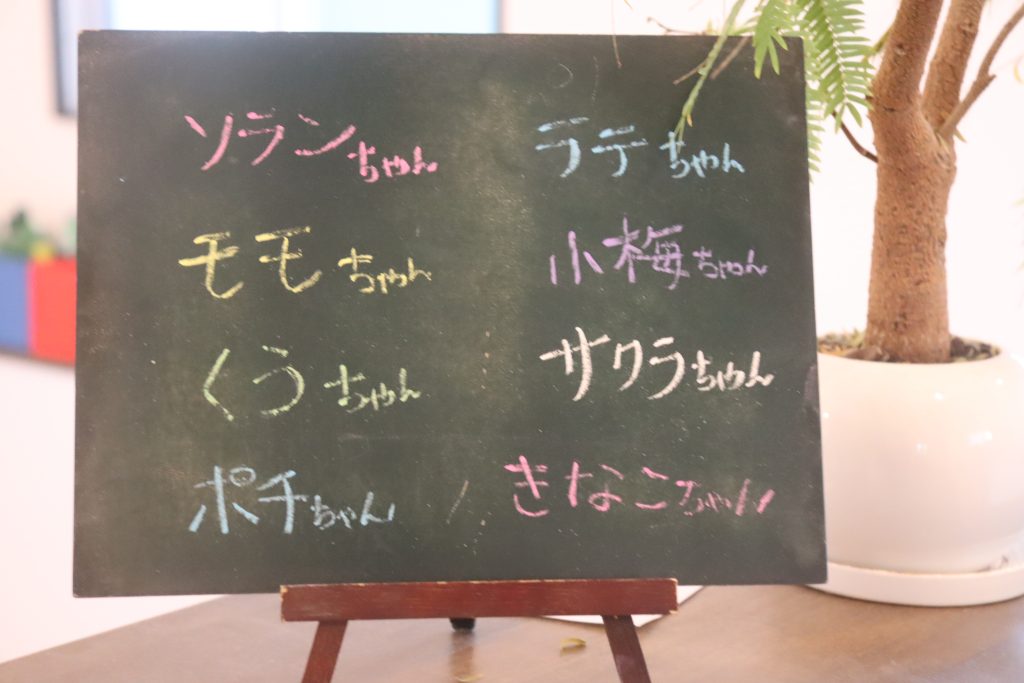 ソランちゃん
モモちゃん
くうちゃん
ポチちゃん
ラテちゃん
小梅ちゃん
サクラちゃん
きなこちゃん